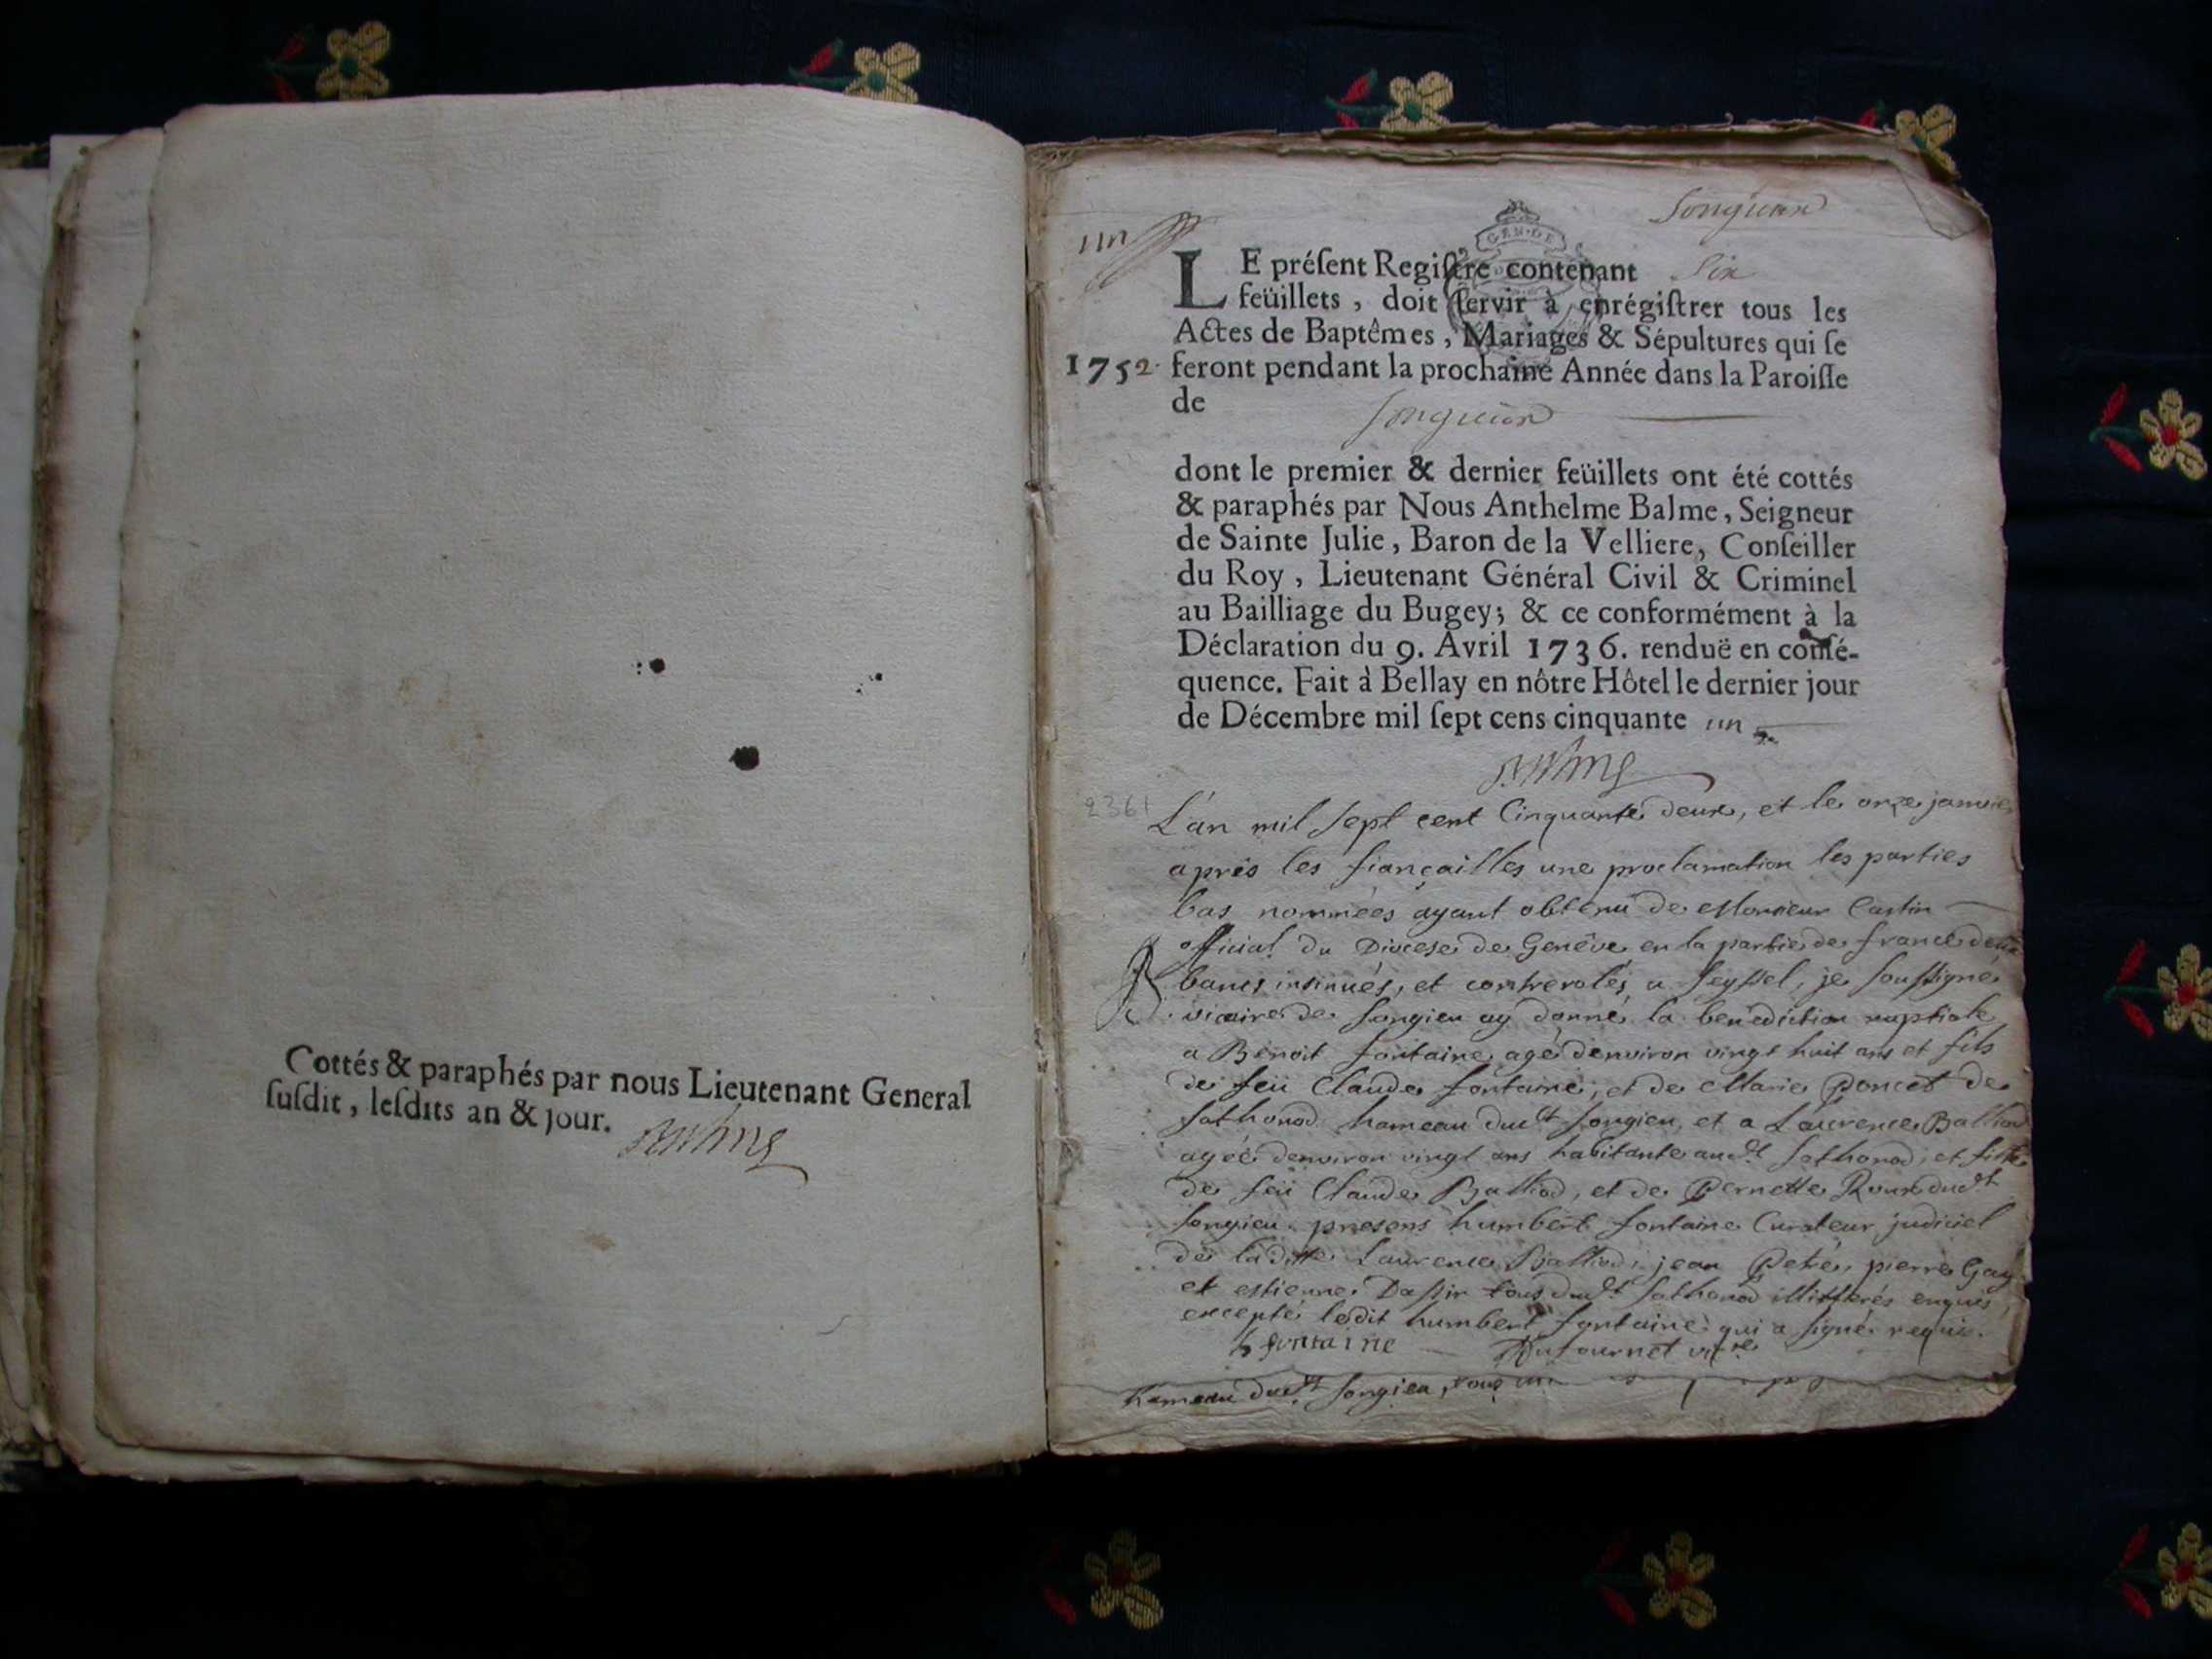 Cottés & paraphés par nous Lieutenant General
ſuſdit, leſdits an & jour.
un
Songieu
GEN·DE
LE préſent Regiſtre contenant Six
feüillets, doit ſervir à enrégiſtrer tous les
Actes de Baptêmes, Mariages & Sépultures qui ſe
1752. feront pendant la prochaine Année dans la Paroiſſe
de Songieu
dont le premier & dernier feüillets ont été cottés
& paraphés par Nous Anthelme Balme, Seigneur
de Sainte Julie, Baron de la Velliere, Conſeiller
du Roy, Lieutenant Général Civil & Criminel
au Bailliage du Bugey; & ce conformément à la
Déclaration du 9. Avril 1736. renduë en conſé-
quence. Fait à Bellay en nôtre Hôtel le dernier jour
de Décembre mil ſept cens cinquante un
2361
L'an mil sept cent Cinquante deux, et le onze janvier
aprés les fiançailles une proclamation les parties
bas nommées ayant obtenu de Monsieur Castin
official du Diocese de Genêve en la partie de france deux
bancs insinués, et controlés a Seyssel, je soussigné
vicaire de Songieu ay donné la benediction nuptiale
a Benoit fontaine agé denviron vingt huit ans et fils
de feü Claude fontaine, et de Marie Poncet de
Sothonod hameau dudt Songieu, et a Laurence Balliod
agée denviron vingt ans habitante audt Sothonod, et fille
de feü Claude Balliod, et de Pernette Roux dudt
Songieu. presens humbert fontaine Curateur judiciel
de laditte Laurence Balliod, jean Petré, pierre Gay
et estienne Dassin tous dudt Sothonod illitterés enquis,
excepté ledit humbert fontaine qui a signé requis.
h fontaine Dufournet vicre
hameau dudt Songieu, tous